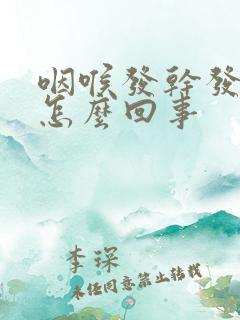 咽喉發幹發
怎麼回事
李琛
未经同意禁止转载